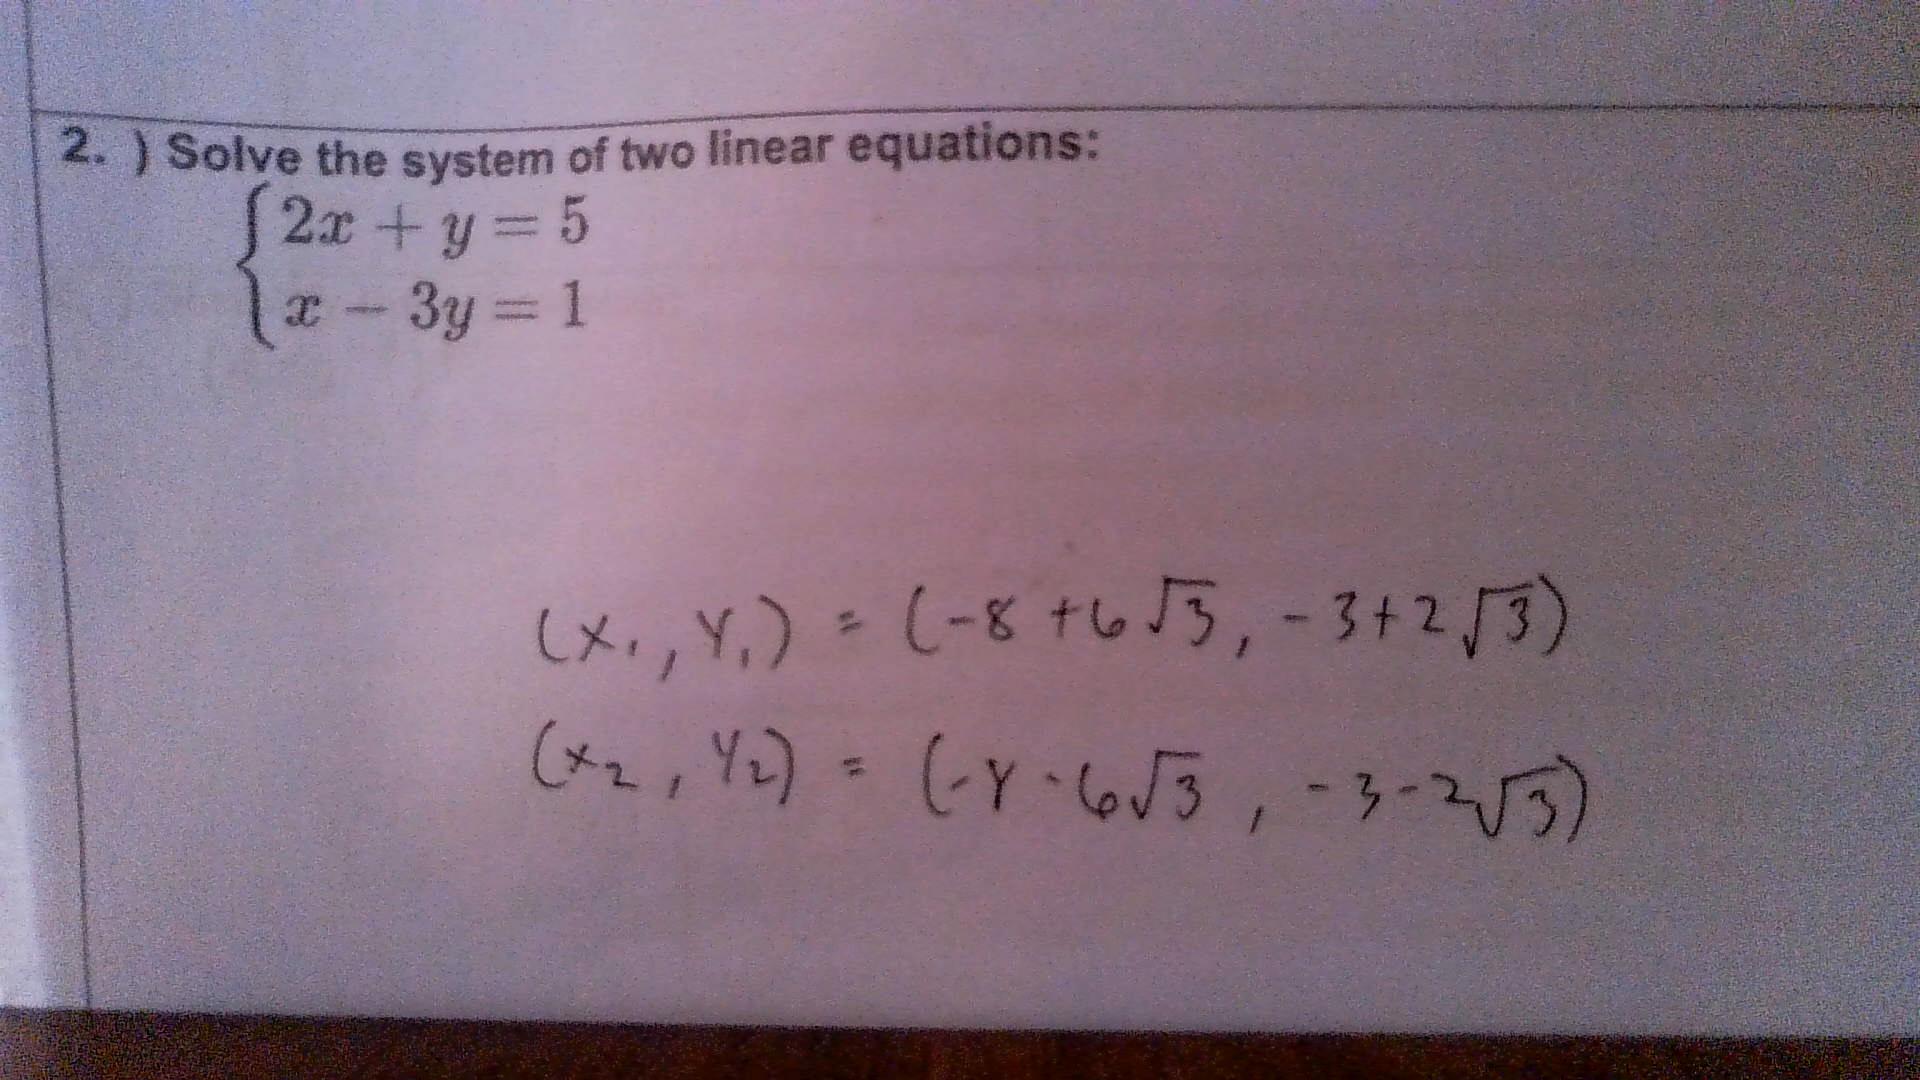 2. ) Solve the system of two linear equations:
2x + y = 5
x − 3y = 1
(x₁, y₁) = (-8 + 6√3, -3 + 2√3)
(x₂, y₂) = (-8 - 6√3, -3 - 2√3)